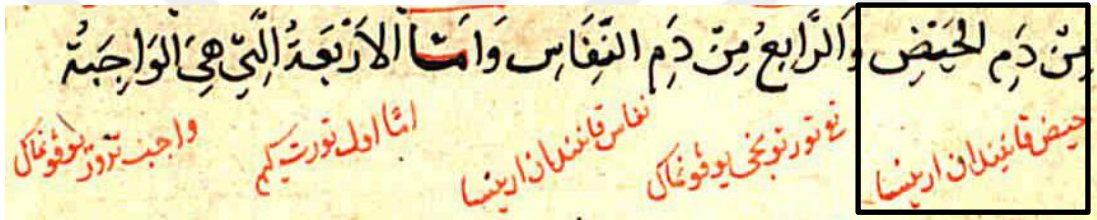 مِنْ دَمِ الحَيْضِ وَالرَّابِعُ مِنْ دَمِ النِّفَاسِ وَاَمَّا الاَرْبَعَةُ الَّتِي هِيَ الوَاجِبَةُ
حيض قانيندان ارينسا تورتونجى يوقونماق نفاس قانيندان ارينسا امّا اول تورت كيم واجب ترور يوقونماق